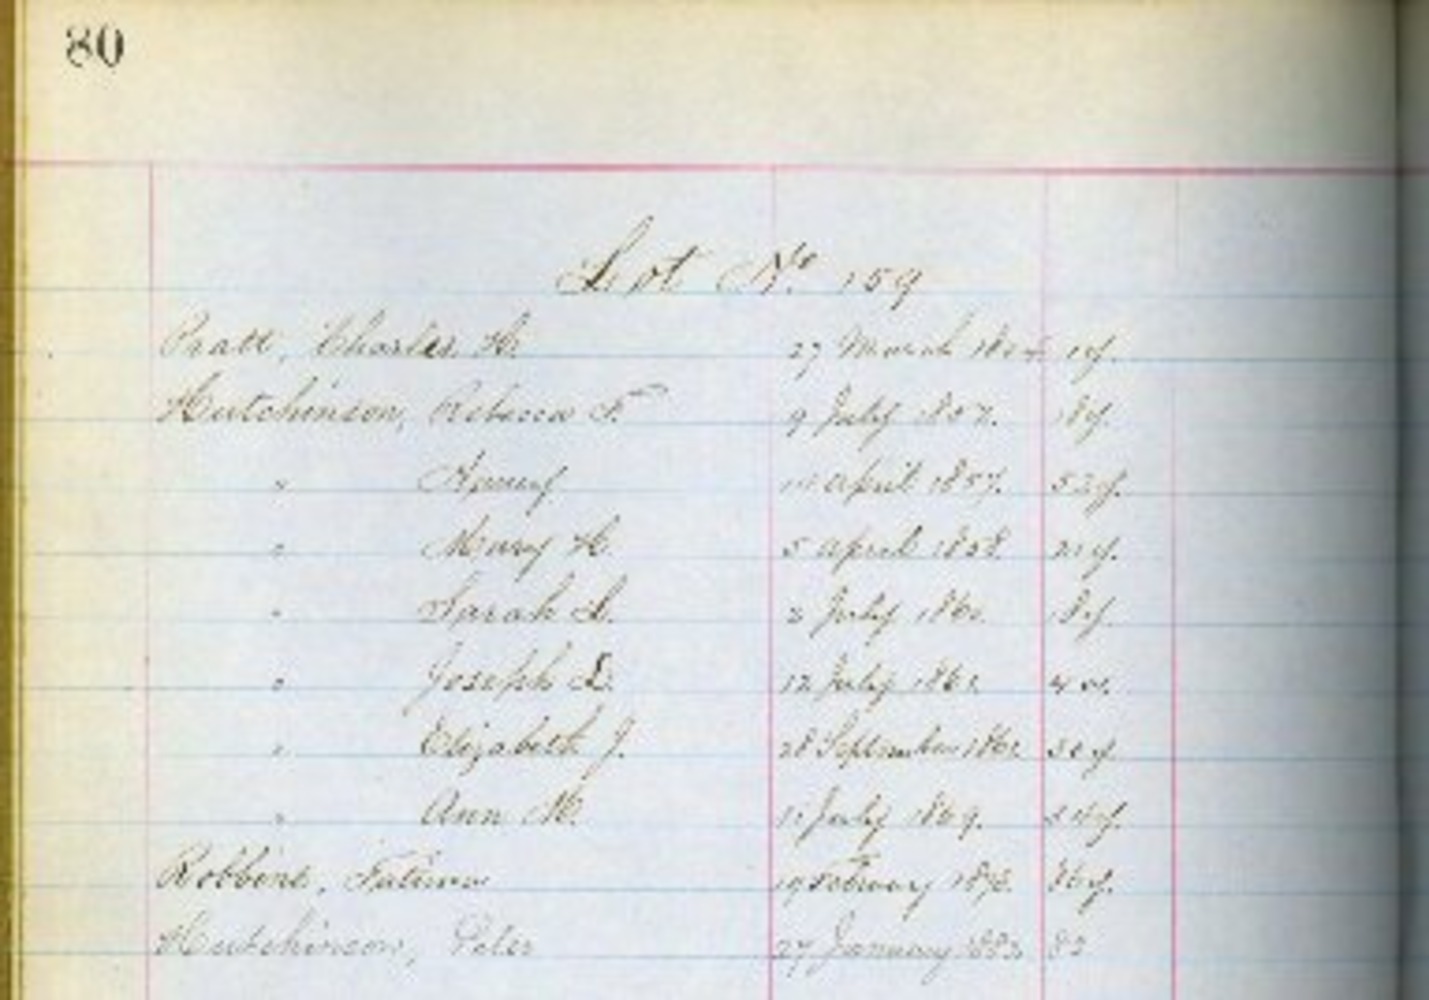 80
Lot No. 159
Pratt, Charles H. 27 March
Hutchinson, Rebecca F. 9 July 1857. 18y.
" April 1857. 52y.
" Mary H. 5 April 1858. 21y.
" Sarah L. 2 July 18y.
" Joseph L. 12 July
" Elizabeth J. 28 September
" Ann M. 11 July 1869.
Robbins, 19 February 86y.
Hutchinson, Peter 27 January 1883. 82